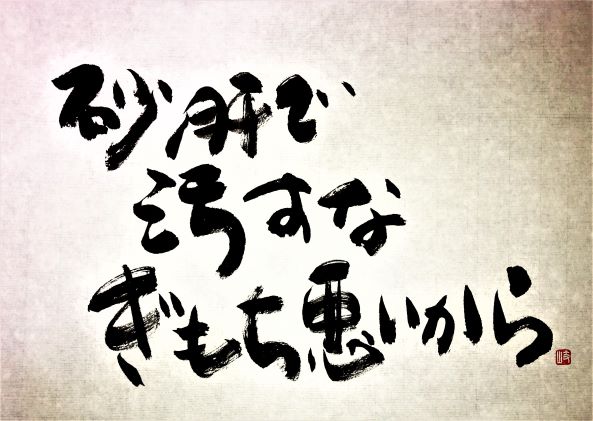 砂肝で
汚すな
ぎもち悪いから